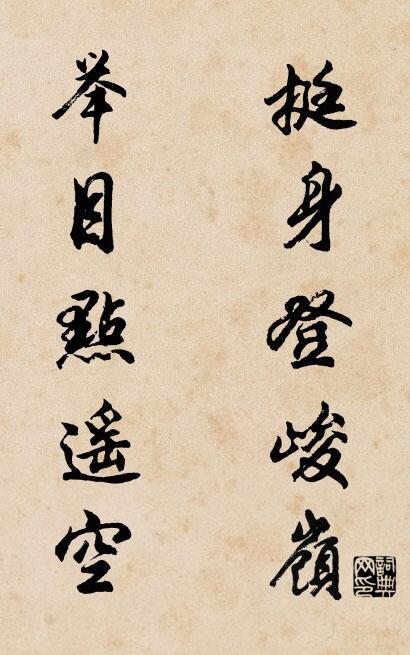 挺身登峻嶺
举目點遥空
詞典
网印